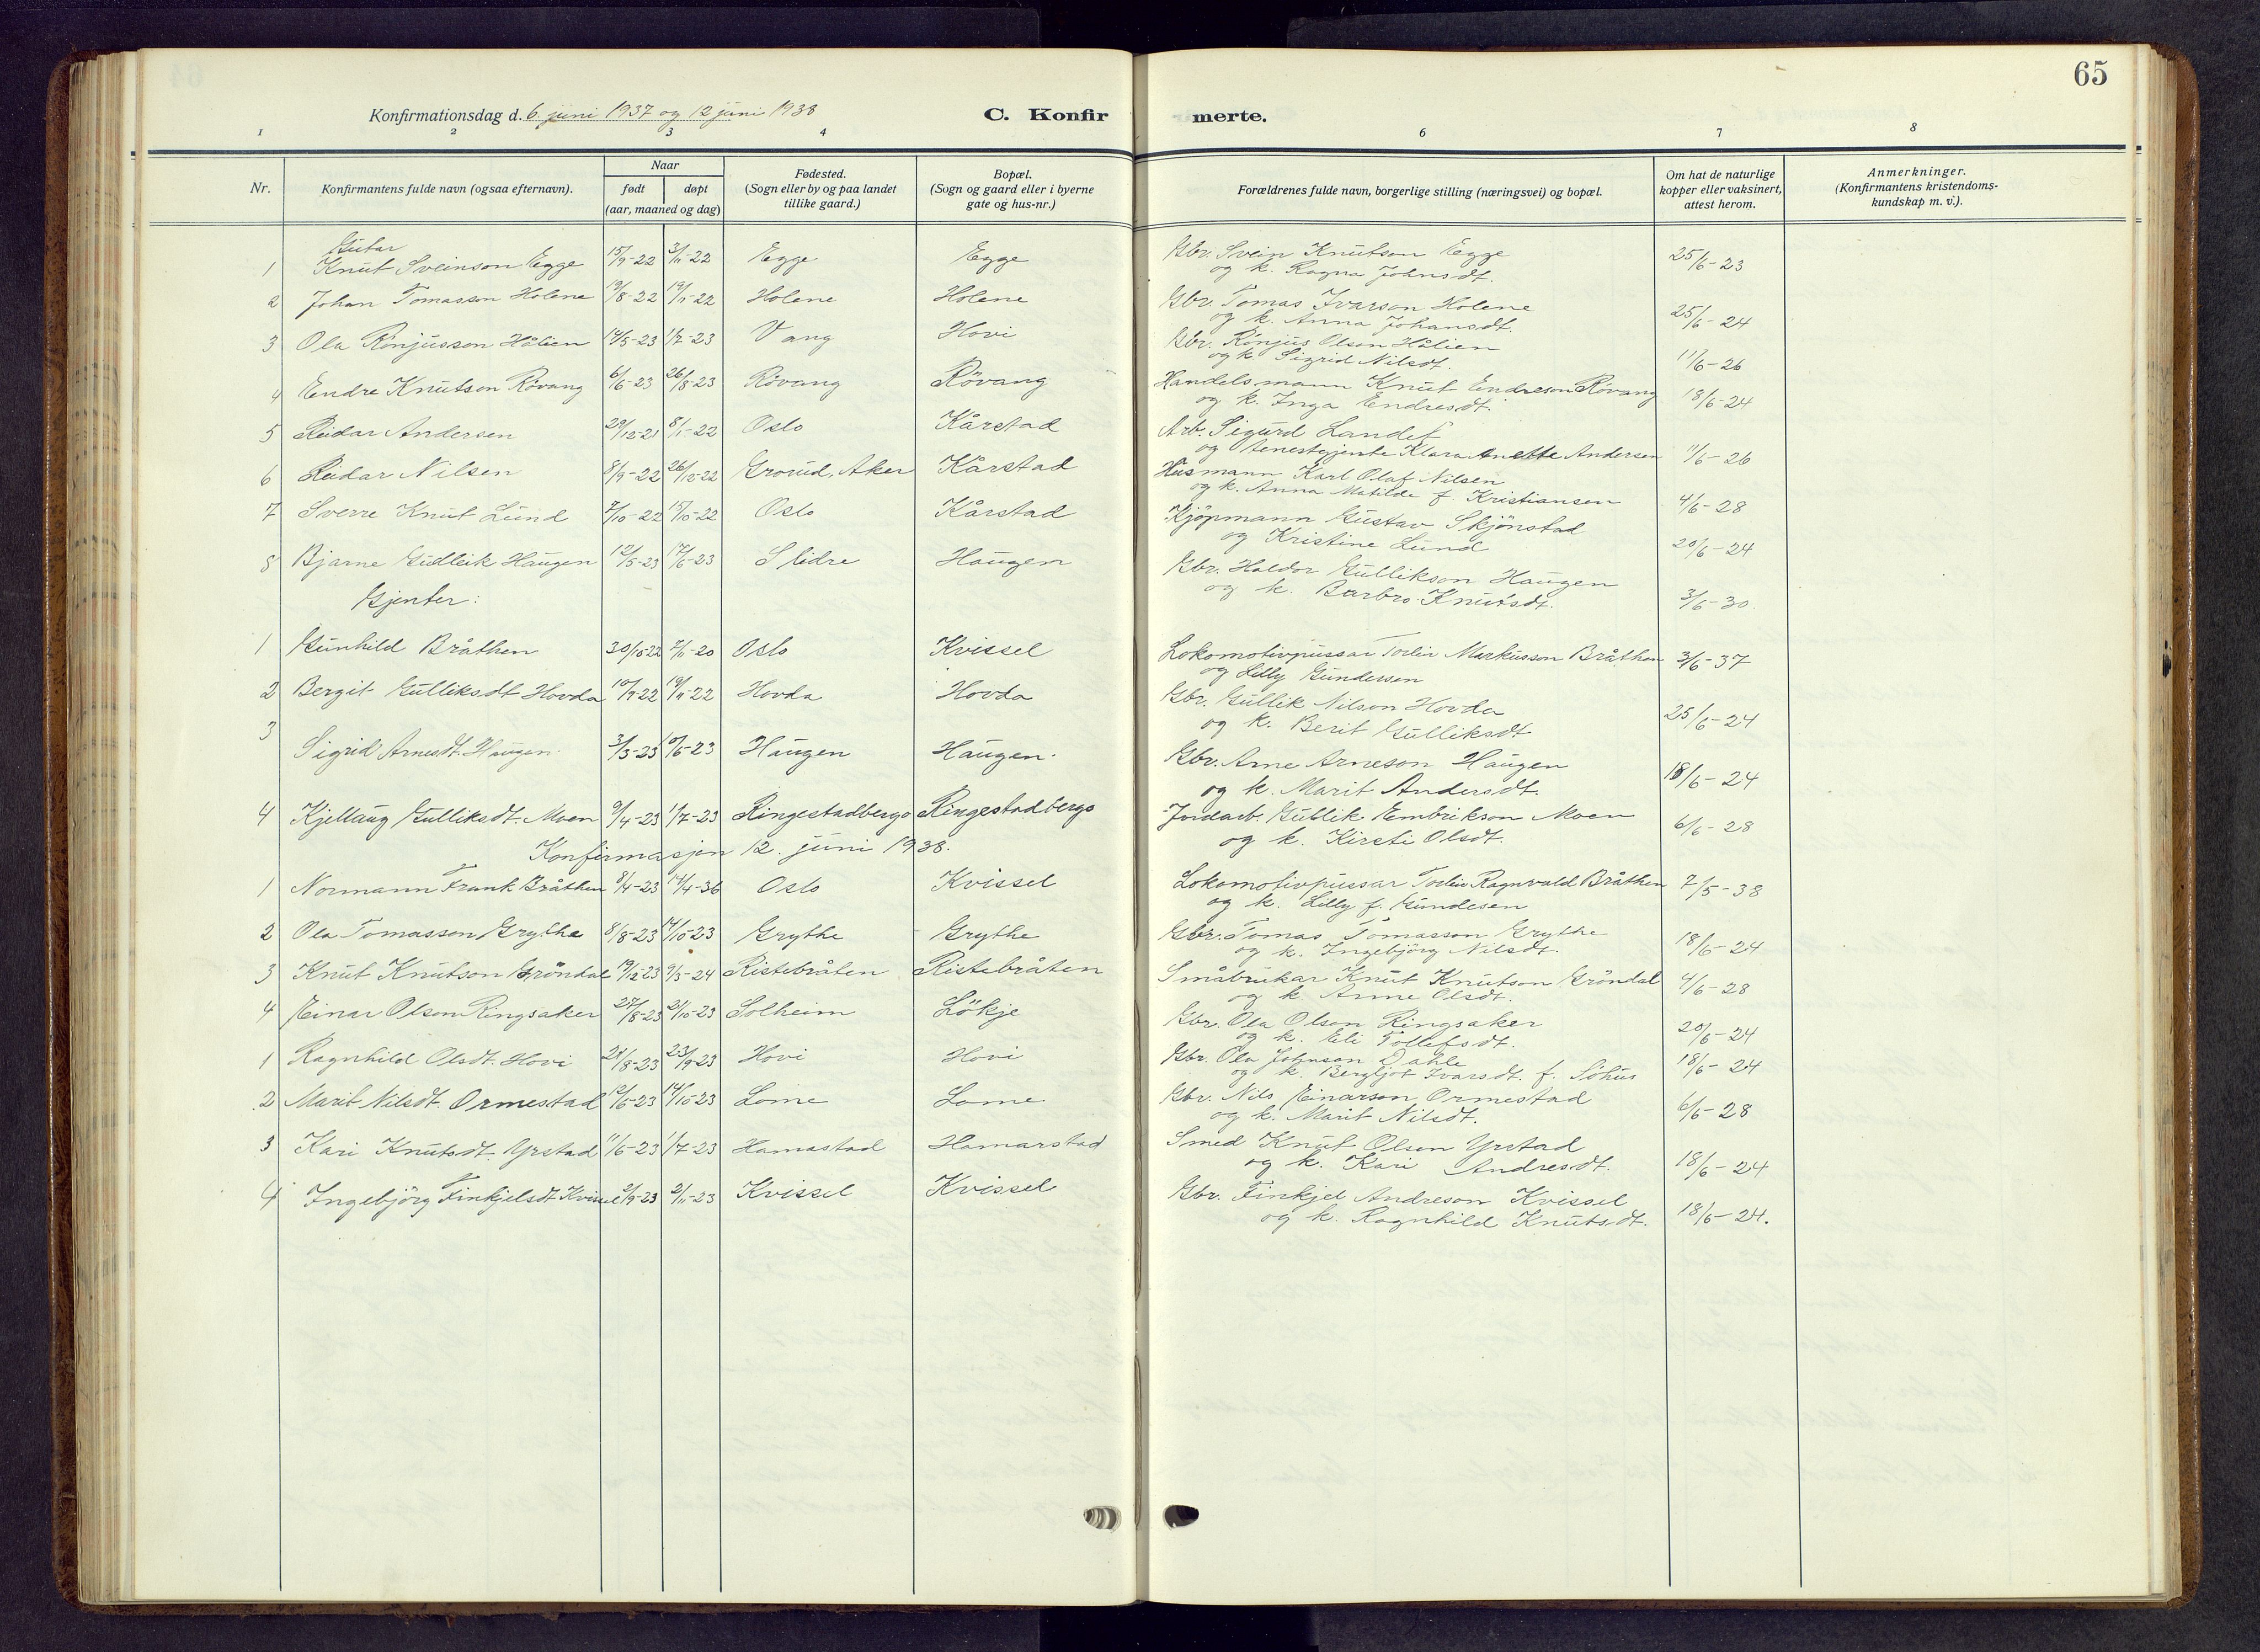 65
Konfirmationsdag d. 6. juni 1937 og 12 juni 1938 C. Konfir merte.
1 2 3 4 6 7 8
Nr. Konfirmantens fulde navn (ogsaa efternavn). Naar født døpt (aar, maaned og dag) Fødested. (Sogn eller by og paa landet tillike gaard.) Bopæl. (Sogn og gaard eller i byerne gate og hus-nr.) Forældrenes fulde navn, borgerlige stilling (næringsvei) og bopæl. Om hat de naturlige kopper eller vaksinert, attest herom. Anmerkninger. (Konfirmantens kristendoms-kundskap m. v.).
Gutar
1 Knut Sveinson Egge 15/9-22 3/11-22 Egge Egge Gbr. Svein Knutson Egge 25/6-23
og k. Ragna Johnsdt.
2 Johan Tomasson Holene 19/8-22 19/11-22 Holene Holene Gbr. Tomas Ivarson Holene 25/6-24
og k. Anna Johansdt.
3 Ola Rönjusson Hålien 14/5-23 1/7-23 Vang Hovi Gbr. Rönjus Olson Hålien 11/6-26
og k Sigrid Nilsdt.
4 Endre Knutson Rövang 6/6-23 26/8-23 Rövang Rövang Handelsmann Knut Endreson Rövang 18/6-24
og k. Inga Endresdt.
5 Reidar Andersen 29/12-21 8/1-22 Oslo Kårstad Arb. Sigurd Landet 11/6-26
og tenestegjente Klara Anette Andersen
6 Reidar Nilsen 8/9-22 26/12-22 Grorud, Aker Kårstad Husmann Karl Olaf Nilsen 4/6-28
og k. Anna Matilde f. Kristiansen
7 Sverre Knut Lund 7/10-22 15/10-22 Oslo Kårstad Kjöpmann Gustav Skjönstad 20/6-24
og Kristine Lund
8 Bjarne Gudleik Haugen 12/5-23 17/6-23 Slidre Haugen Gbr. Haldor Gullikson Haugen 3/6-30.
og k. Barbro Knutsdt.
Gjenter:
1 Gunhild Bråthen 30/10-22 7/11-20 Oslo Kvissel Lokomotivpussar Torleiv Markusson Bråthen 3/6-37
og Lilly Gundersen
2 Bergit Gulliksdt Hovda 10/9-22 19/11-22 Hovda Hovda Gbr. Gullik Nilson Hovda 25/6-24
og k. Berit Gulliksdt
3 Sigrid Arnesdt. Haugen. 3/3-23 10/6-23 Haugen Haugen. Gbr. Arne Arneson Haugen 18/6-24
og k. Marit Andersdt.
4 Kjellaug Gulliksdt. Moen 9/4-23 1/7-23 Ringestadbergo Ringestadbergo Jordarb. Gullik Embrikson Moen 6/6-28
og k. Kirsti Olsdt.
Konfirmasjon 12. juni 1938.
1 Normann Frank Bråthen 8/4-23 14/4-36 Oslo Kvissel Lokomotivpussar Torleiv Ragnvald Bråthen 7/5-38
og k. Lilly f. Gundesen
2 Ola Tomasson Grythe 8/8-23 14/10-23 Grythe Grythe Gbr. Tomas Tomasson Grythe 18/6-24
og k. Ingebjörg Nilsdt.
3 Knut Knutson Gröndal 19/12-23 9/3-24 Ristebråten Ristebråten Småbrukar Knut Knutson Gröndal 4/6-28
og k Anne Olsdt.
4 Einar Olson Ringsaker 27/8-23 21/10-23 Solheim Lökje Gbr. Ola Olson Ringsaker 20/6-24
og k. Eli Tollefsdt.
1 Ragnhild Olsdt. Hovi 21/8-23 23/9-23 Hovi Hovi Gbr. Ola Johnson Dahle 18/6-24
og k. Bergljot Ivarsdt. f. Söhus
2 Marit Nilsdt. Ormestad 12/6-23 14/10-23 Lome Lome Gbr. Nils Einarson Ormestad 6/6-28
og k. Marit Nilsdt.
3 Kari Knutsdt. Yrstad 11/6-23 1/7-23 Hamastad Hamarstad Smed Knut Olsen Yrstad 18/6-24
og k. Kari Andresdt.
4 Ingebjörg Finkjelsdt Kvissel 2/9-23 2/11-23 Kvissel Kvissel Gbr. Finkjel Andreson Kvissel 18/6-24.
og k. Ragnhild Knutsdt.